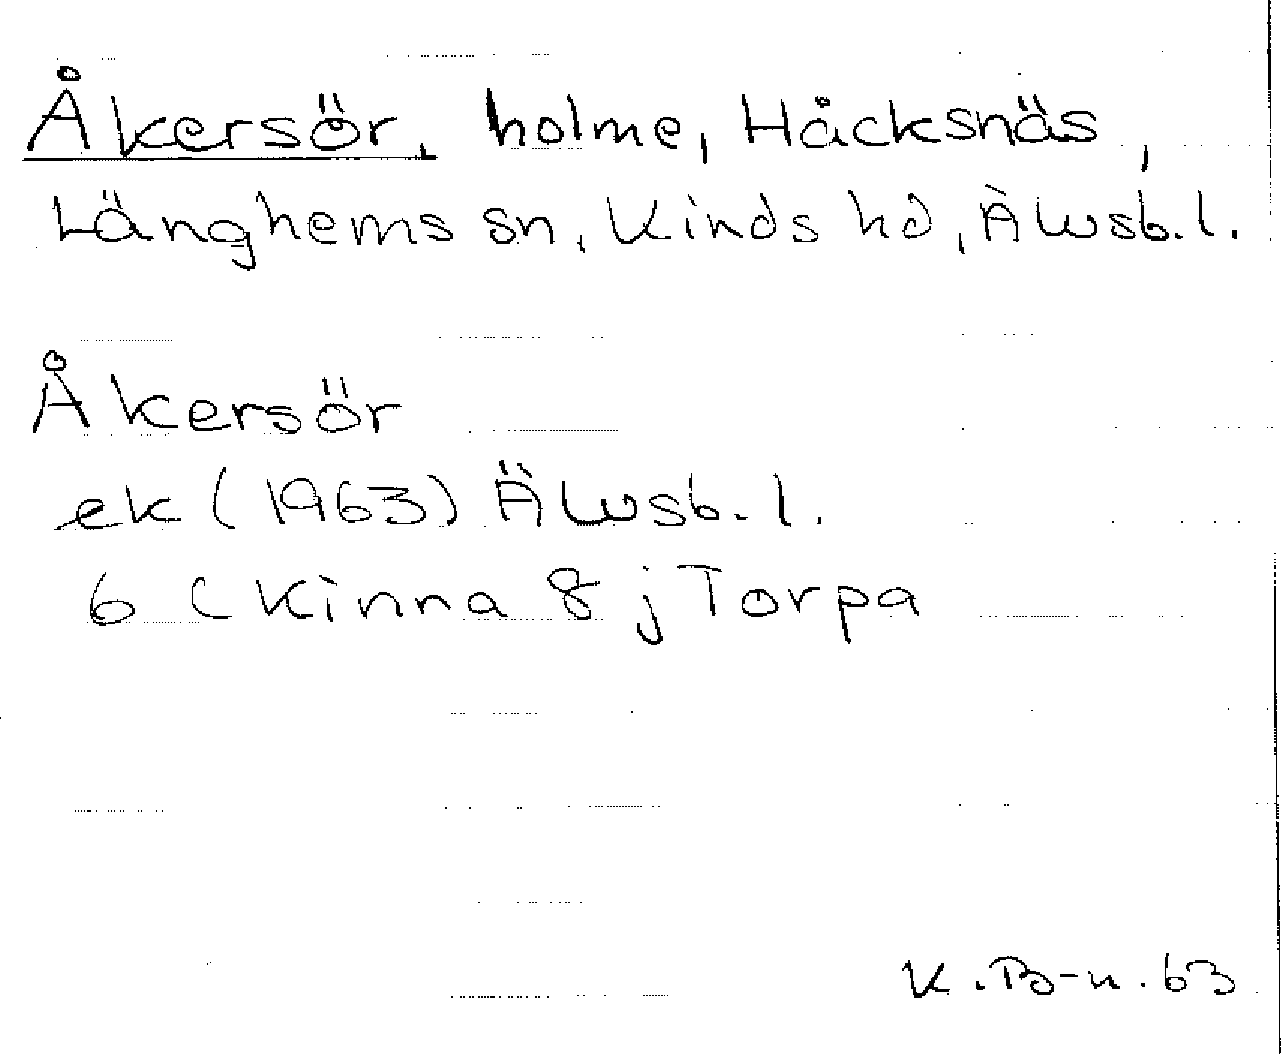 Åkersör, holme, Håcksnäs,
Länghems sn, Kinds hd, Älvsb. l.
Åkersör
ek (1963) Älvsb. l.
6 C Kinna 8 j Torpa
K. B-n. 63